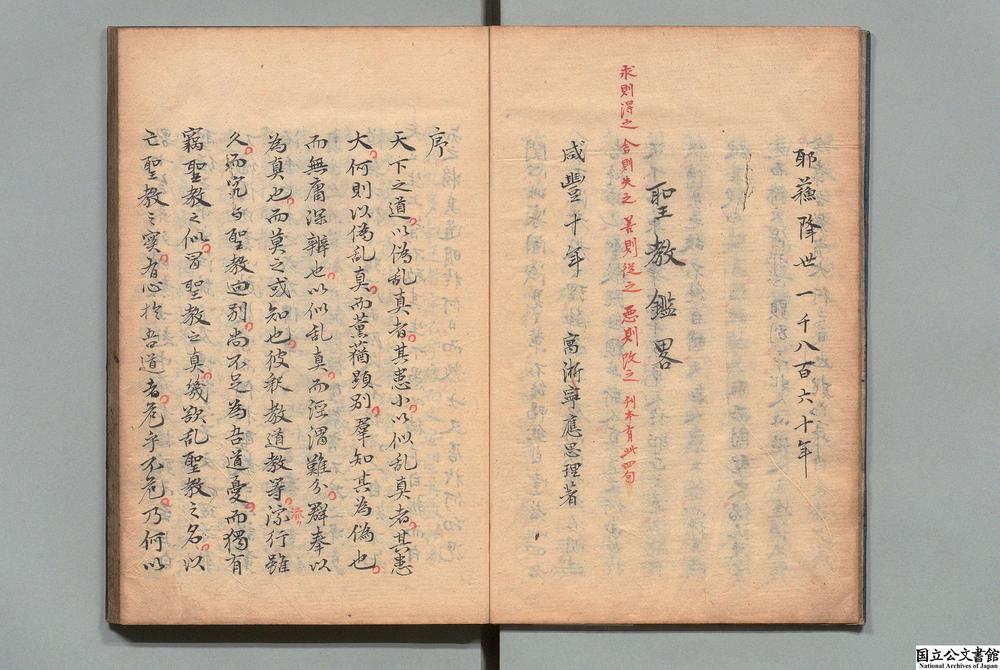 耶蘇降世一千八百六十年
聖教鑑畧
求則得之舍則失之善則從之惡則改之刋本有此四句
咸豐十年
寓浙寧應思理著
序
天下之道以偽乱真者其患小以似乱真者其患
大何則以偽乱真而薰蕕顕別羣知其為偽也
而無庸深辨也以似乱真而涇渭難分群奉以
為真也而莫之或知也彼釈教道教等宗行雖
流
久而究与聖教迥別尚不足為吾道憂而獨有
竊聖教之似冒聖教之真幾欲乱聖教之名以
亡聖教之実者心於吾道者危乎不危乃何以
国立公文書館
National Archives of Japan